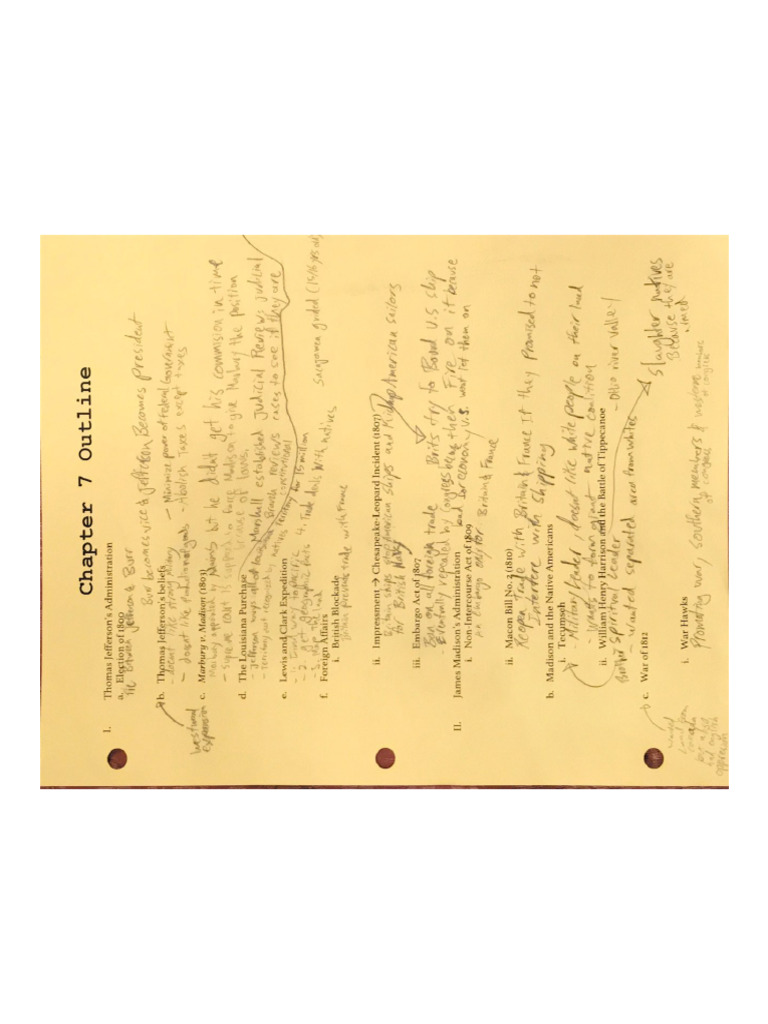 Chapter 7 Outline
I. Thomas Jefferson's Administration
a. Election of 1800
Tie Between Jefferson & Burr
Burr becomes vice & Jefferson Becomes president
b. Thomas Jefferson's beliefs
→ Minimize power of Federal Government
- doesnt like strong military
- doesnt like
- Abolish Taxes except
westward expansion
c. Marbury v. Madison (1803)
Marbury appointed by but he didnt get his commission in time
- supreme court is to force Madison to give Marbury the position
because of laws,
Marshall established Judicial Review, judicial
Branch reviews cases to see if they are
constitutional
d. The Louisiana Purchase
- Jefferson
- territory
for 15 million
e. Lewis and Clark Expedition
2. get geographic facts
4. Trade deals with natives
Sacajawea guided
f. Foreign Affairs
i. British Blockade
prevents trade with France
ii. Impressment → Chesapeake-Leopard Incident (1807)
Britain ships American ships and American sailors
for British Navy
iii. Embargo Act of 1807
Ban on all foreign trade
- Eventually repealed by congress being
bad for economy
Brits try to Board U.S ship
then Fire on it because
U.S. wont let them on
II. James Madison's Administration
i. Non-Intercourse Act of 1809
for Britain & France
ii. Macon Bill No. 2 (1810)
Reopen trade with Britain & France If they Promised to not
Interfere with Shipping
b. Madison and the Native Americans
i. Tecumseh
- Military leader, doesnt like white people on their land
- Wants to form giant native coalition
ii. William Henry Harrison and the Battle of Tippecanoe
- Ohio river valley
Brother spiritual leader
- wanted separated area from whites
Slaughter natives
Because they are
c. War of 1812
i. War Hawks
Promoting war, Southern members & western members
of congress
of congress